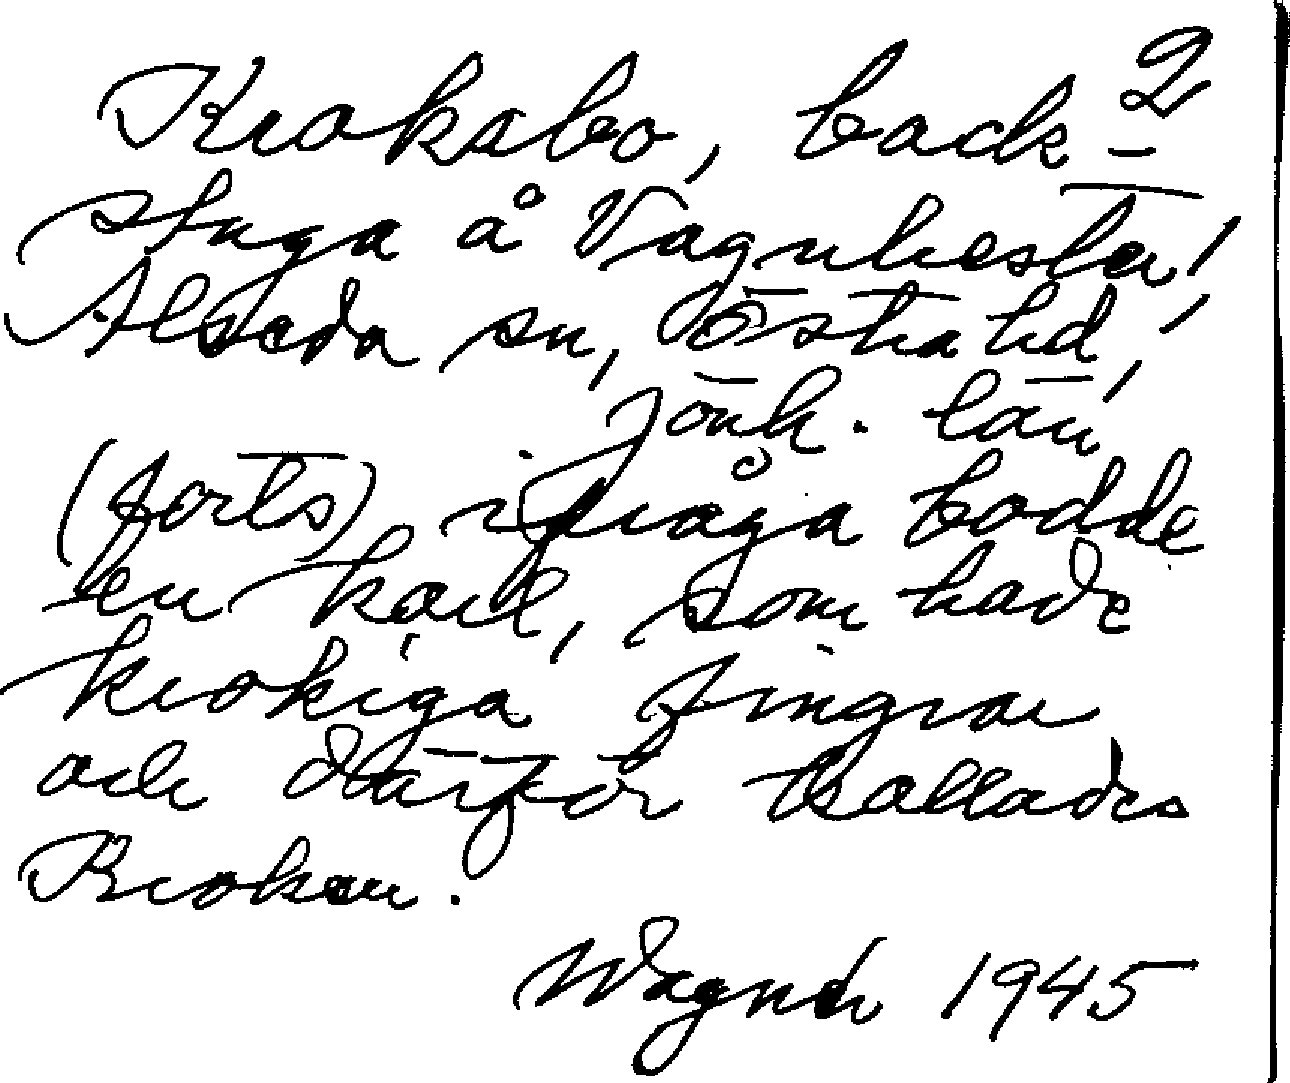 2
Krokabo, back-
stuga å Vagnhester,
Alseda sn, Östra hd,
Jönk. län
(forts) ifråga bodde
en karl, som hade
krokiga fingrar
och därför kallades
Kroken.
Wagnér 1945